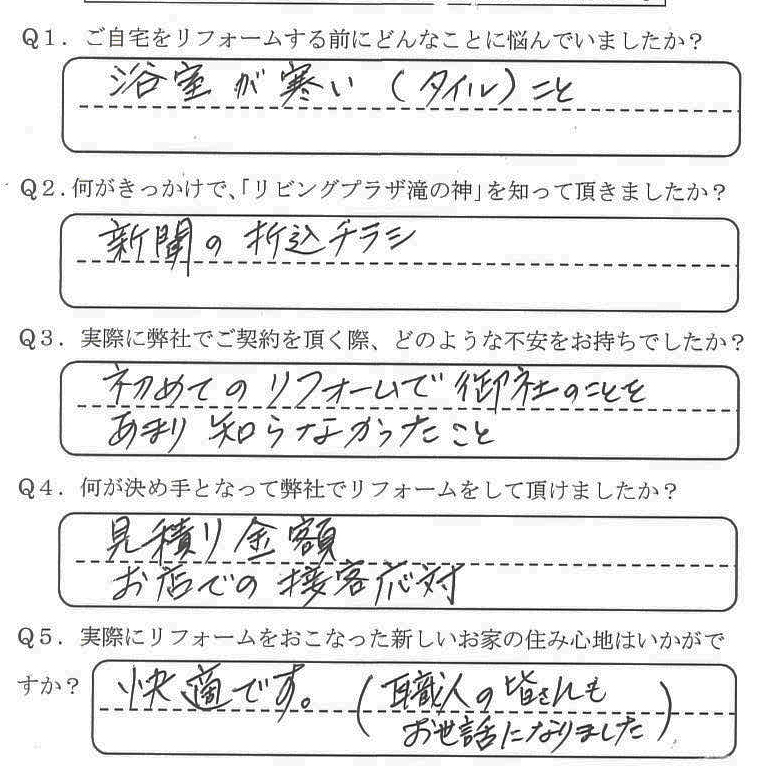 Q1．ご自宅をリフォームする前にどんなことに悩んでいましたか？
浴室が寒い（タイル）こと
Q2．何がきっかけで、「リビングプラザ滝の神」を知って頂きましたか？
新聞の折込チラシ
Q3．実際に弊社でご契約を頂く際、どのような不安をお持ちでしたか？
初めてのリフォームで御社のことを
あまり知らなかったこと
Q4．何が決め手となって弊社でリフォームをして頂けましたか？
見積り金額
お店での接客応対
Q5．実際にリフォームをおこなった新しいお家の住み心地はいかがで
すか？
快適です。（職人の皆さんも
お世話になりました）